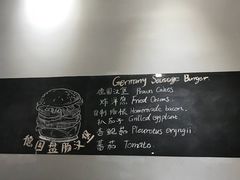 Germany Sausage Burger
德国汉堡 Prawn Cakes
炸洋葱 Fried Onions
自制培根 Homemade bacon
扒茄子 Grilled eggplant
杏鲍菇 Pleurotus eryngii
蕃茄 Tomato
德国盘肠汉堡